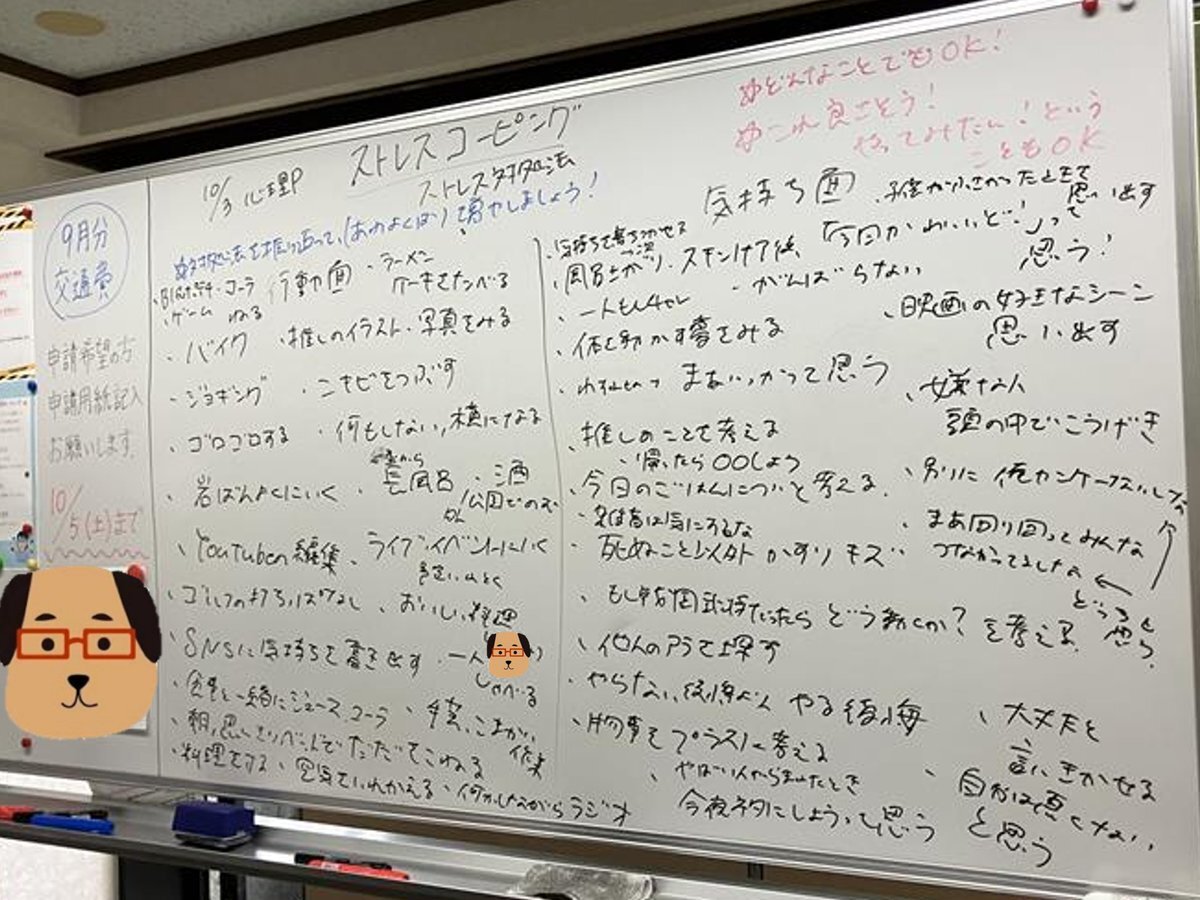 9月分
交通費
申請希望の方
申請用紙記入
お願いします。
10/5(土)まで
10/3 心理P
ストレスコーピング
ストレス対処法
対処法を振り返って、(あわよくば)増やしましょう!
どんなことでもOK!
これ良さそう!
やってみたい!という
こともOK
行動面
・コーラ
・ラーメン
ケーキをたべる
・ゲーム
ねる
・バイク
・推しのイラスト・写真をみる
・ジョギング
・ニキビをつぶす
・ゴロゴロする
・何もしない、横になる
・岩ばんよくにいく
・長風呂
・酒
公園でのむ
・Youtube 編集
・ライブ・イベントにいく
・ゴルフの打ちっぱなし
・おいしい料理
・SNSに気持ちを書き出す
・一人
しゃべる
一緒にジュース、コーラ
・こまかい
作業
・朝、思いっきり
だだをこねる
・料理をする
・空気をいれかえる
・何かしながらラジオ
気持ち面
思い出す
・気持ちを落ちつかせる
風呂上がり、スキンケア後
「今日かわいいど!」って
思う!
・がんばらない
・体を動かす夢をみる
・映画の好きなシーン
思い出す
まあいっかって思う
・嫌な人
頭の中でこうげき
・推しのことを考える
・帰ったら〇〇しよう
・今日のごはんについて考える
・別に俺カンケーないしな
気にするな
・死ぬこと以外かすりキズ
・まあ回り回ってみんな
つながってるしなぁ
どうにでもなる
・もし
どう動くか?を考える
・他人のアラを探す
・やらない後悔よりやる後悔
・物事をプラスに考える
・やばい人からまれたとき
今夜ネタにしようって思う
・大丈夫と
言いきかせる
・自分は悪くない、
と思う